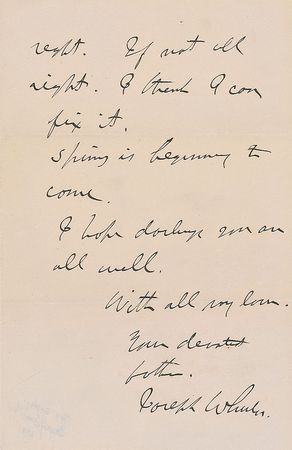 right. If not all
right. I think I can
fix it.
Spring is beginning to
come.
I hope darlings you are
all well.
With all my love.
Your devoted
father.
Joseph Wheeler.